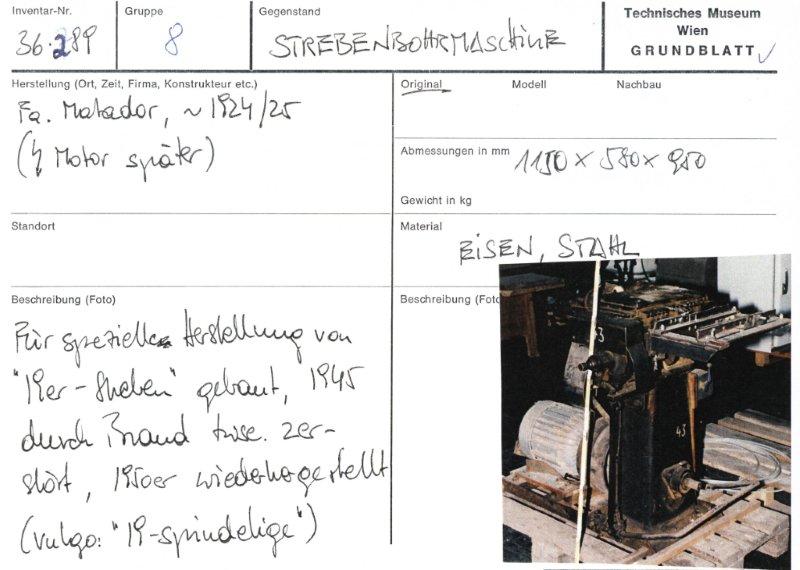 Inventar-Nr. Gruppe Gegenstand Technisches Museum
Wien
36.289 8 STREBENBOHRMASCHINE GRUNDBLATT
Herstellung (Ort, Zeit, Firma, Konstrukteur etc.) Original Modell Nachbau
Fa. Matador, ~ 1924/25
(Motor später)
Abmessungen in mm 1150 x 580 x 950
Gewicht in kg
Standort Material
EISEN, STAHL
Beschreibung (Foto) Beschreibung (Foto
Für spezielle Herstellung von
"19er-Streben" gebaut, 1945
durch Brand tw. zer-
stört, 1950er wiederhergestellt
(vulgo: "19-spindelige")
3
43